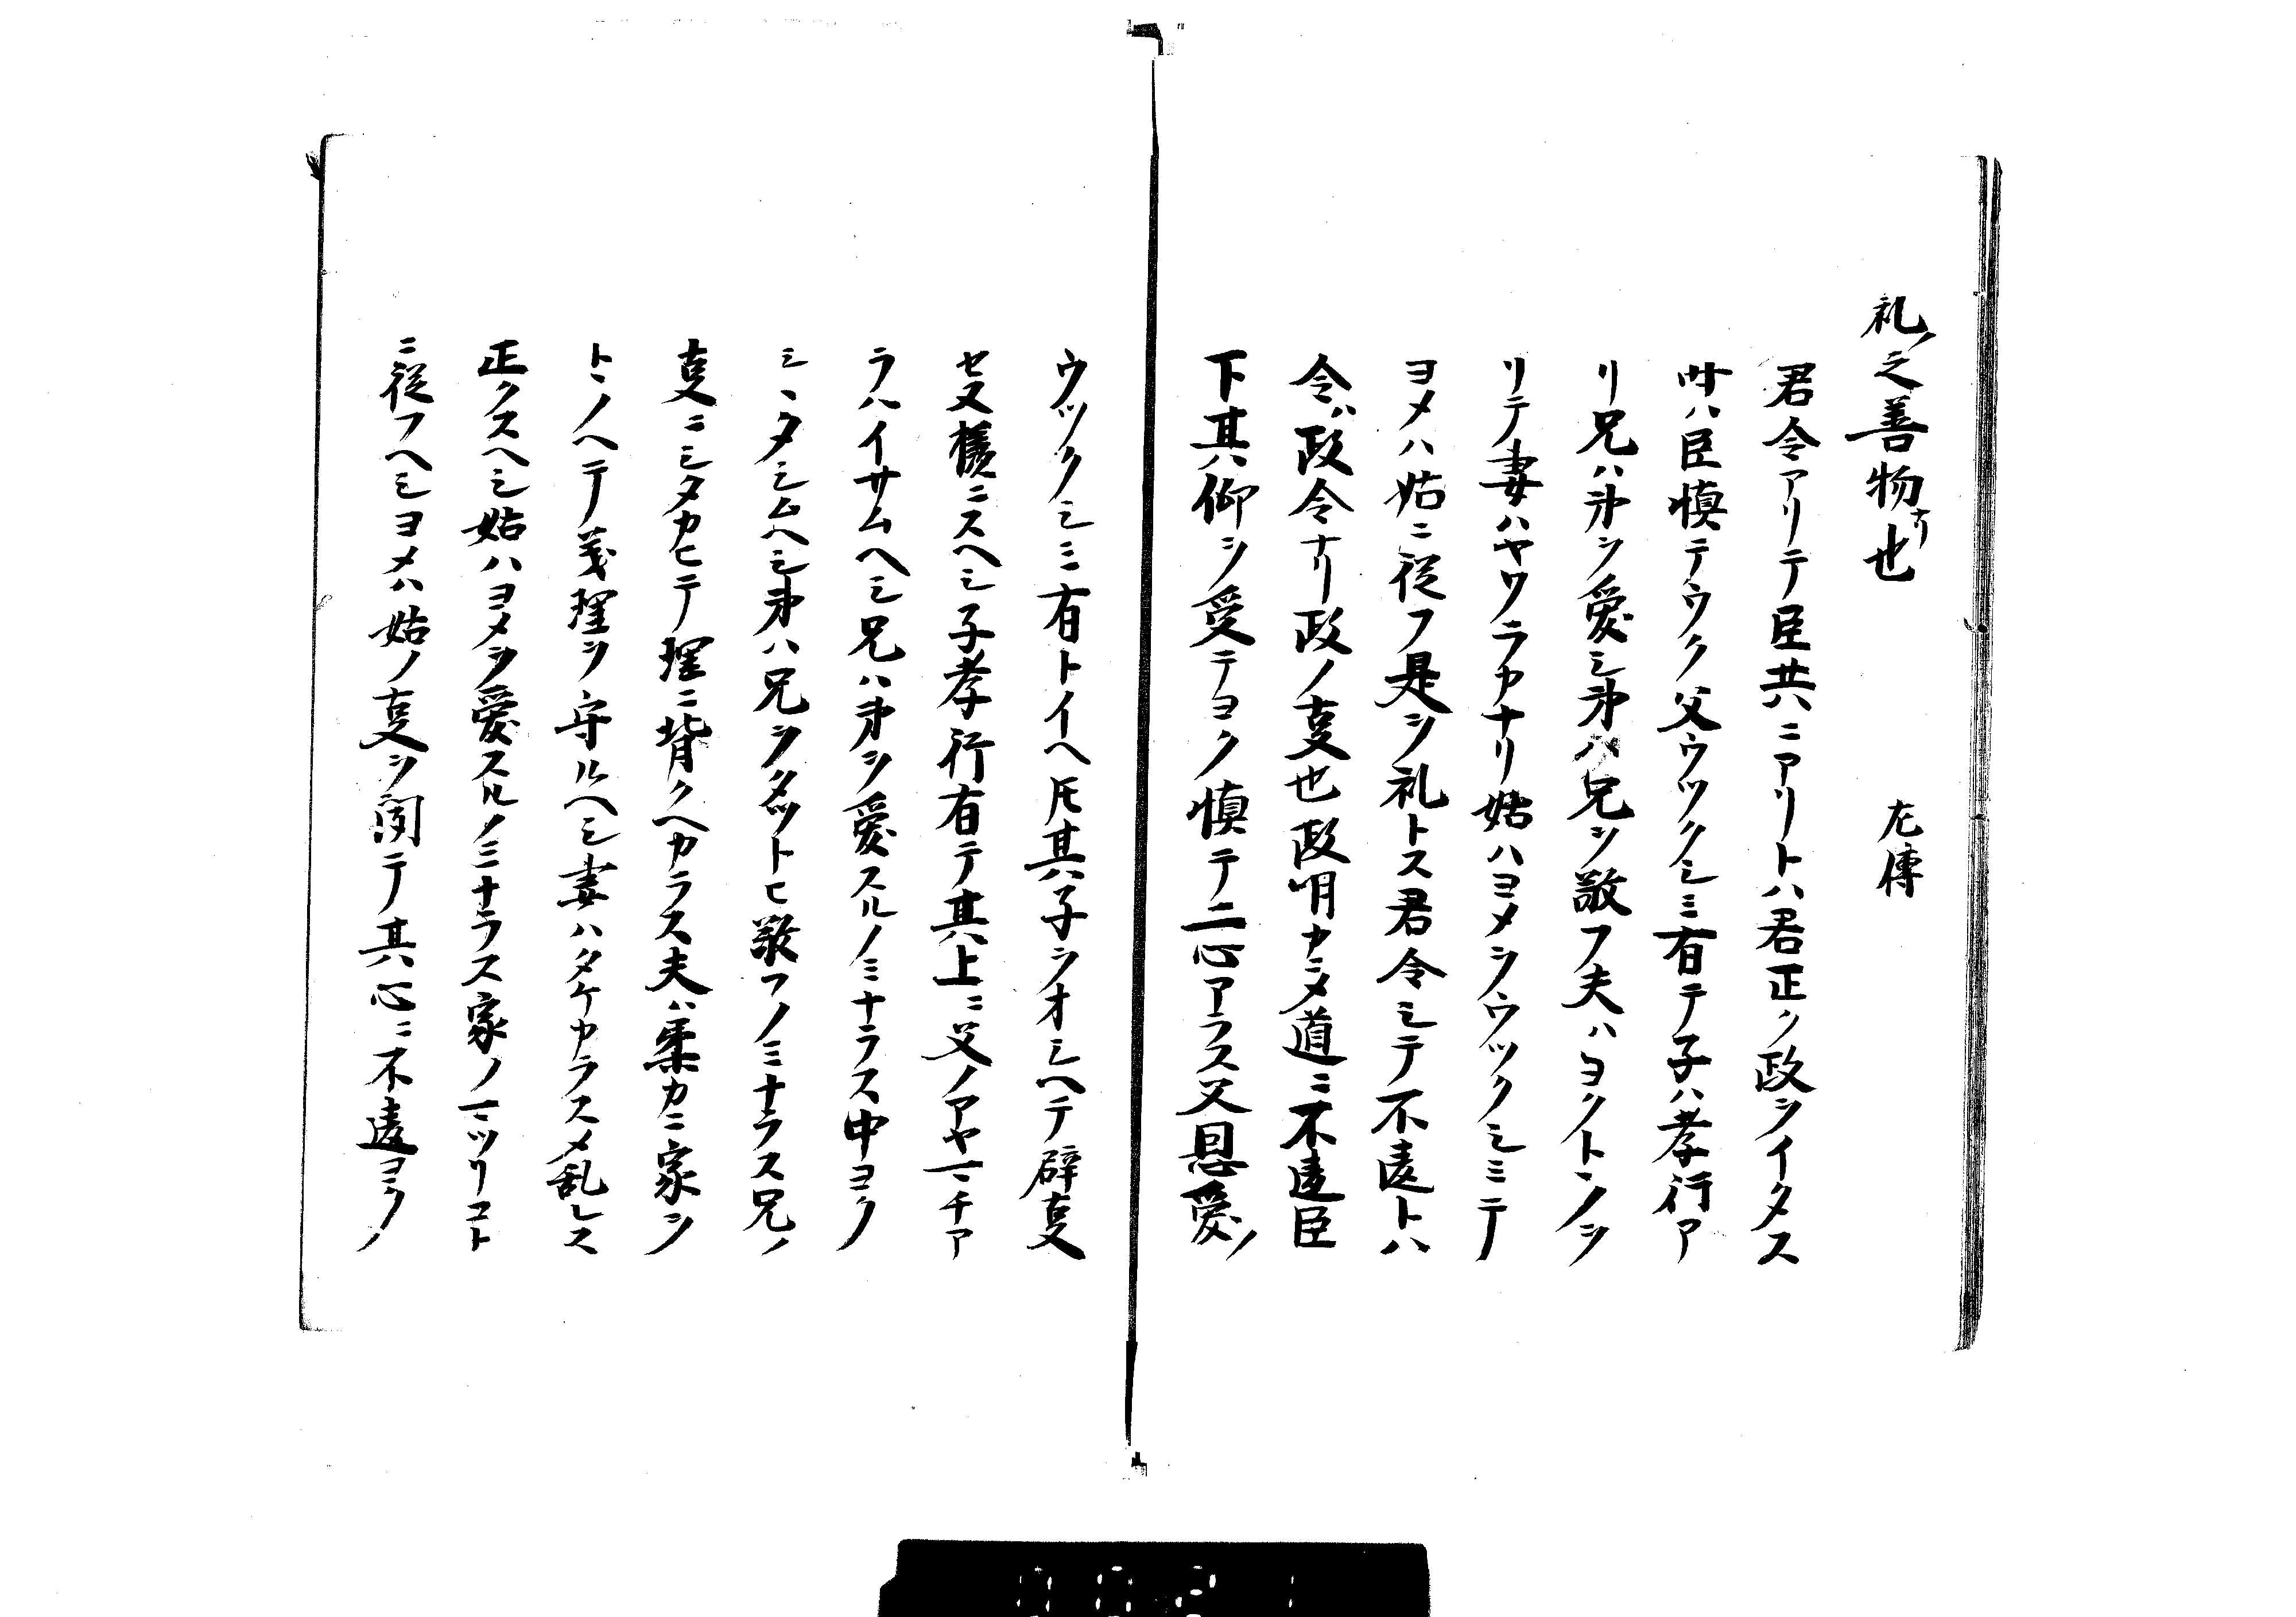 礼ノ之善物ナリ也　　左傳
君令アリテ臣共ニアリトハ君正ク政ヲイタス
時ハ臣慎テウク父ウツクシミ有テ子ハ孝行ア
リ兄ハ弟ヲ愛シ弟ハ兄ヲ敬フ夫ハヨクトヽノヲ
リテ妻ハヤワラカナリ姑ハヨメヲウツクシミテ
ヨメハ姑ニ従フ是ヲ礼トス君令シテ不違トハ
令ハ政令ナリ政ノ叓也政明カニメ道ニ不違臣
下其仰ヲ受テヨク慎テ二心アラス父恩愛ノ
ウツクシミ有トイヘ𪜈其子ヲオシヘテ辟叓
セヌ様ニスヘシ子孝行有テ其上ニ父ノアヤマチア
ラハイサムヘシ兄ハ弟ヲ愛スルノミナラス中ヨク
シヽタシムヘシ弟ハ兄ヲタツトヒ敬フノミナラス兄ノ
叓ニシタカヒテ理ニ背クヘカラス夫ハ柔カニ家ヲ
トヽノヘテ義理ヲ守ルヘシ妻ハタケカラスメ乱レス
正クスヘシ姑ハヨメヲ愛スルノミナラス家ノマツリコト
ニ従フヘシヨメハ姑ノ叓ヲ聞テ其心ニ不違ヨクノ